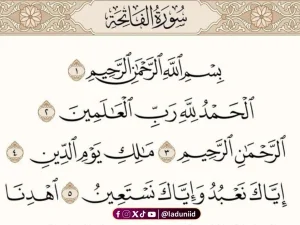 سُورَةُ الفَاتِحَةِ
بِسْمِ ٱللَّهِ ٱلرَّحْمَٰنِ ٱلرَّحِيمِ ١
ٱلْحَمْدُ لِلَّهِ رَبِّ ٱلْعَٰلَمِينَ ٢
ٱلرَّحْمَٰنِ ٱلرَّحِيمِ ٣ مَٰلِكِ يَوْمِ ٱلدِّينِ ٤
إِيَّاكَ نَعْبُدُ وَإِيَّاكَ نَسْتَعِينُ ٥ ٱهْدِنَا
@laduniid